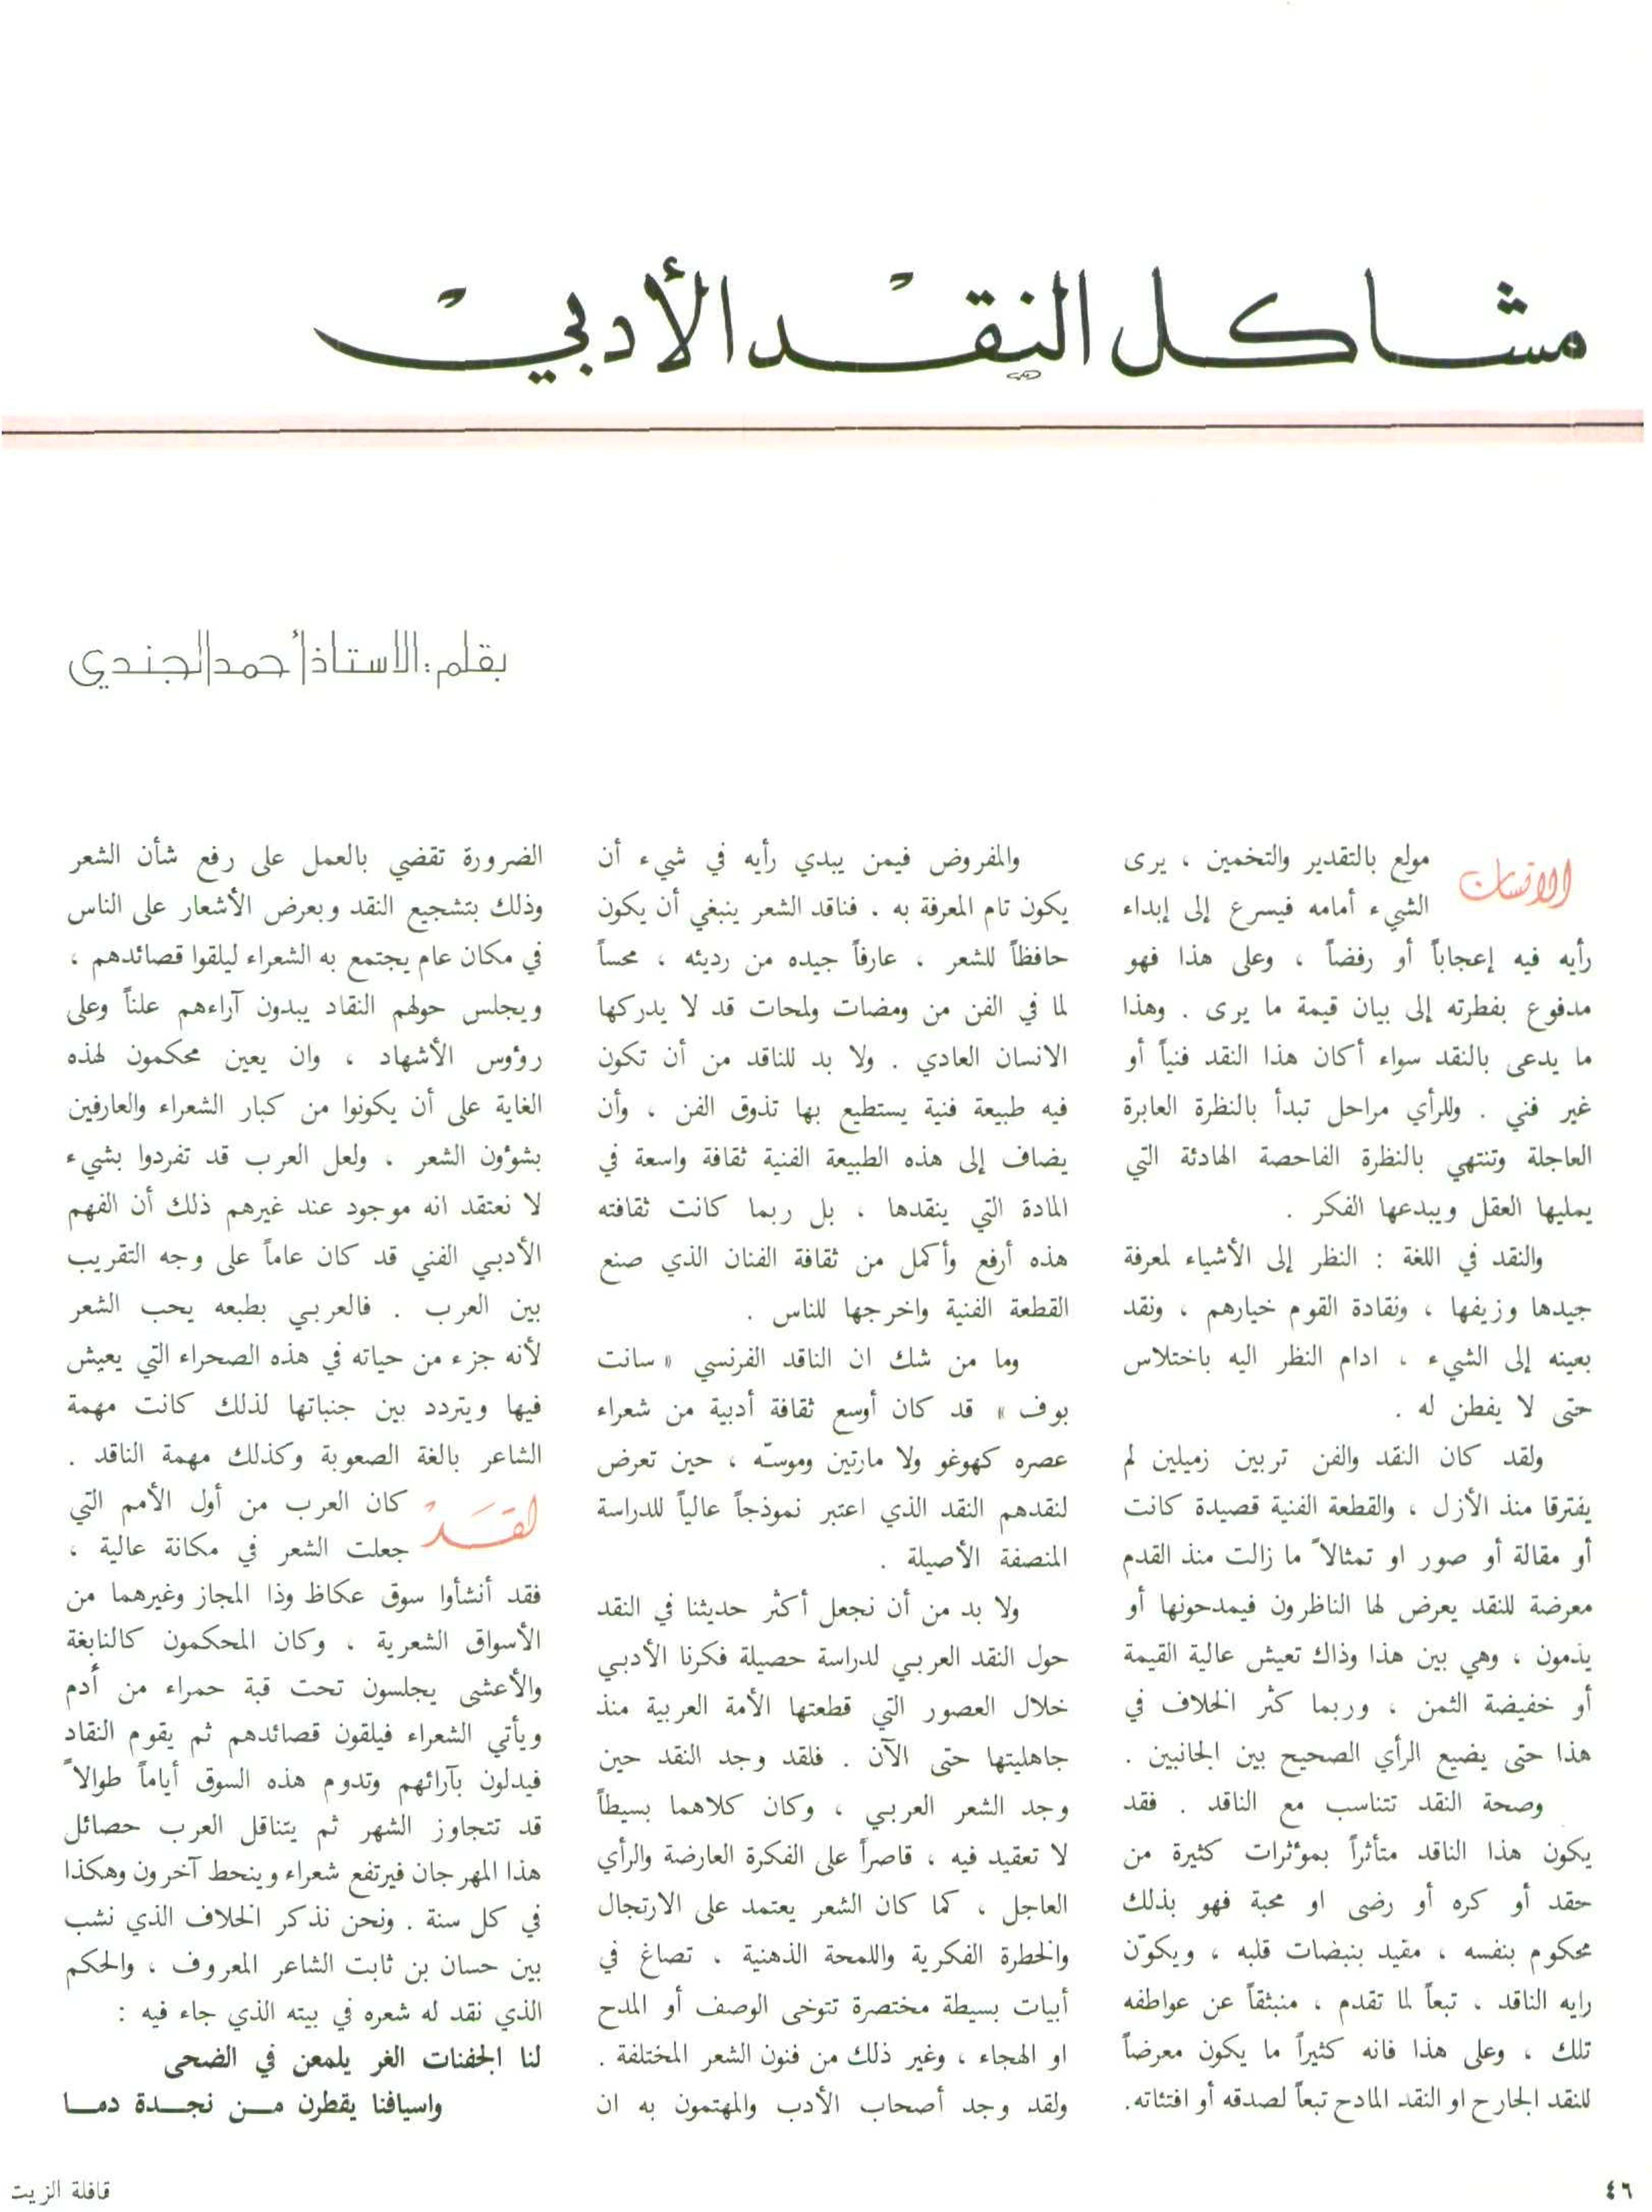 مشاكل النقد الأدبي
بقلم: الاستاذ أحمد الجندي
الانسان مولع بالتقدير والتخمين ، يرى
الشيء أمامه فيسرع إلى إبداء
رأيه فيه إعجاباً أو رفضاً ، وعلى هذا فهو
مدفوع بفطرته إلى بيان قيمة ما يرى . وهذا
ما يدعى بالنقد سواء أكان هذا النقد فنياً أو
غير فني . وللرأي مراحل تبدأ بالنظرة العابرة
العاجلة وتنتهي بالنظرة الفاحصة الهادئة التي
يمليها العقل ويبدعها الفكر .
والنقد في اللغة : النظر إلى الأشياء لمعرفة
جيدها وزيفها ، ونقادة القوم خيارهم ، ونقد
بعينه إلى الشيء ، ادام النظر اليه باختلاس
حتى لا يفطن له .
ولقد كان النقد والفن تربين زميلين لم
يفترقا منذ الأزل ، والقطعة الفنية قصيدة كانت
أو مقالة أو صور او تمثالاً ما زالت منذ القدم
معرضة للنقد يعرض لها الناظرون فيمدحونها أو
يذمون ، وهي بين هذا وذاك تعيش عالية القيمة
أو خفيضة الثمن ، وربما كثر الخلاف في
هذا حتى يضيع الرأي الصحيح بين الجانبين .
وصحة النقد تتناسب مع الناقد . فقد
يكون هذا الناقد متأثراً بموٴثرات كثيرة من
حقد أو كره أو رضى او محبة فهو بذلك
محكوم بنفسه ، مقيد بنبضات قلبه ، ويكوّن
رايه الناقد ، تبعاً لما تقدم ، منبثقاً عن عواطفه
تلك ، وعلى هذا فانه كثيراً ما يكون معرضاً
للنقد الجارح او النقد المادح تبعاً لصدقه أو افتئاته.
والمفروض فيمن يبدي رأيه في شيء أن
يكون تام المعرفة به . فناقد الشعر ينبغي أن يكون
حافظاً للشعر ، عارفاً جيده من رديئه ، محساً
لما في الفن من ومضات ولمحات قد لا يدركها
الانسان العادي . ولا بد للناقد من أن تكون
فيه طبيعة فنية يستطيع بها تذوق الفن ، وأن
يضاف إلى هذه الطبيعة الفنية ثقافة واسعة في
المادة التي ينقدها ، بل ربما كانت ثقافته
هذه أرفع وأكمل من ثقافة الفنان الذي صنع
القطعة الفنية واخرجها للناس .
وما من شك ان الناقد الفرنسي « سانت
بوف » قد كان أوسع ثقافة أدبية من شعراء
عصره كهوغو ولا مارتين وموسّه ، حين تعرض
لنقدهم النقد الذي اعتبر نموذجاً عالياً للدراسة
المنصفة الأصيلة .
ولا بد من أن نجعل أكثر حديثنا في النقد
حول النقد العربي لدراسة حصيلة فكرنا الأدبي
خلال العصور التي قطعتها الأمة العربية منذ
جاهليتها حتى الآن . فلقد وجد النقد حين
وجد الشعر العربي ، وكان كلاهما بسيطاً
لا تعقيد فيه ، قاصراً على الفكرة العارضة والرأي
العاجل ، كما كان الشعر يعتمد على الارتجال
والخطرة الفكرية واللمحة الذهنية ، تصاغ في
أبيات بسيطة مختصرة تتوخى الوصف أو المدح
او الهجاء ، وغير ذلك من فنون الشعر المختلفة .
ولقد وجد أصحاب الأدب والمهتمون به ان
الضرورة تقضي بالعمل على رفع شأن الشعر
وذلك بتشجيع النقد وبعرض الأشعار على الناس
في مكان عام يجتمع به الشعراء ليلقوا قصائدهم ،
ويجلس حولهم النقاد يبدون آراءهم علناً وعلى
روٴوس الأشهاد ، وان يعين محكمون لهذه
الغاية على أن يكونوا من كبار الشعراء والعارفين
بشوٴون الشعر ، ولعل العرب قد تفردوا بشيء
لا نعتقد انه موجود عند غيرهم ذلك أن الفهم
الأدبي الفني قد كان عاماً على وجه التقريب
بين العرب . فالعربي بطبعه يحب الشعر
لأنه جزء من حياته في هذه الصحراء التي يعيش
فيها ويتردد بين جنباتها لذلك كانت مهمة
الشاعر بالغة الصعوبة وكذلك مهمة الناقد .
لقد كان العرب من أول الأمم التي
جعلت الشعر في مكانة عالية ،
فقد أنشأوا سوق عكاظ وذا المجاز وغيرهما من
الأسواق الشعرية ، وكان المحكمون كالنابغة
والأعشى يجلسون تحت قبة حمراء من أدم
ويأتي الشعراء فيلقون قصائدهم ثم يقوم النقاد
فيدلون بآرائهم وتدوم هذه السوق أياماً طوالاً
قد تتجاوز الشهر ثم يتناقل العرب حصائل
هذا المهرجان فيرتفع شعراء وينحط آخرون وهكذا
في كل سنة . ونحن نذكر الخلاف الذي نشب
بين حسان بن ثابت الشاعر المعروف ، والحكم
الذي نقد له شعره في بيته الذي جاء فيه :
لنا الجفنات الغر يلمعن في الضحى
واسيافنا يقطرن مـن نجـدة دمـا
٤٦
قافلة الزيت